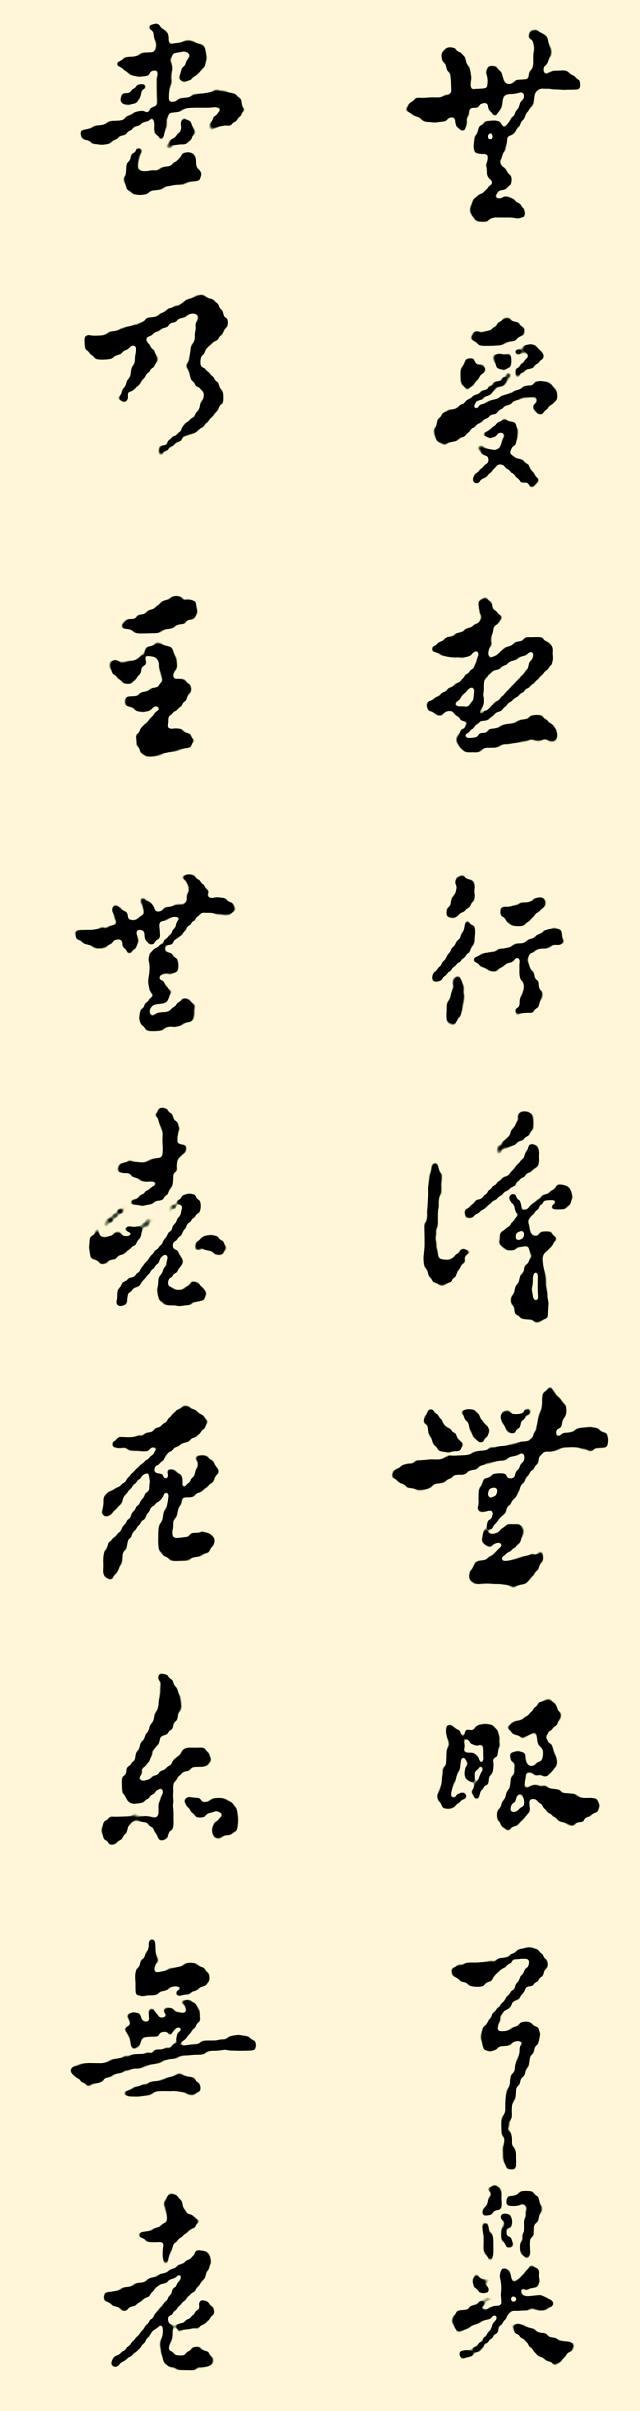 無受想行識無眼耳鼻
盡乃至無老死亦無老